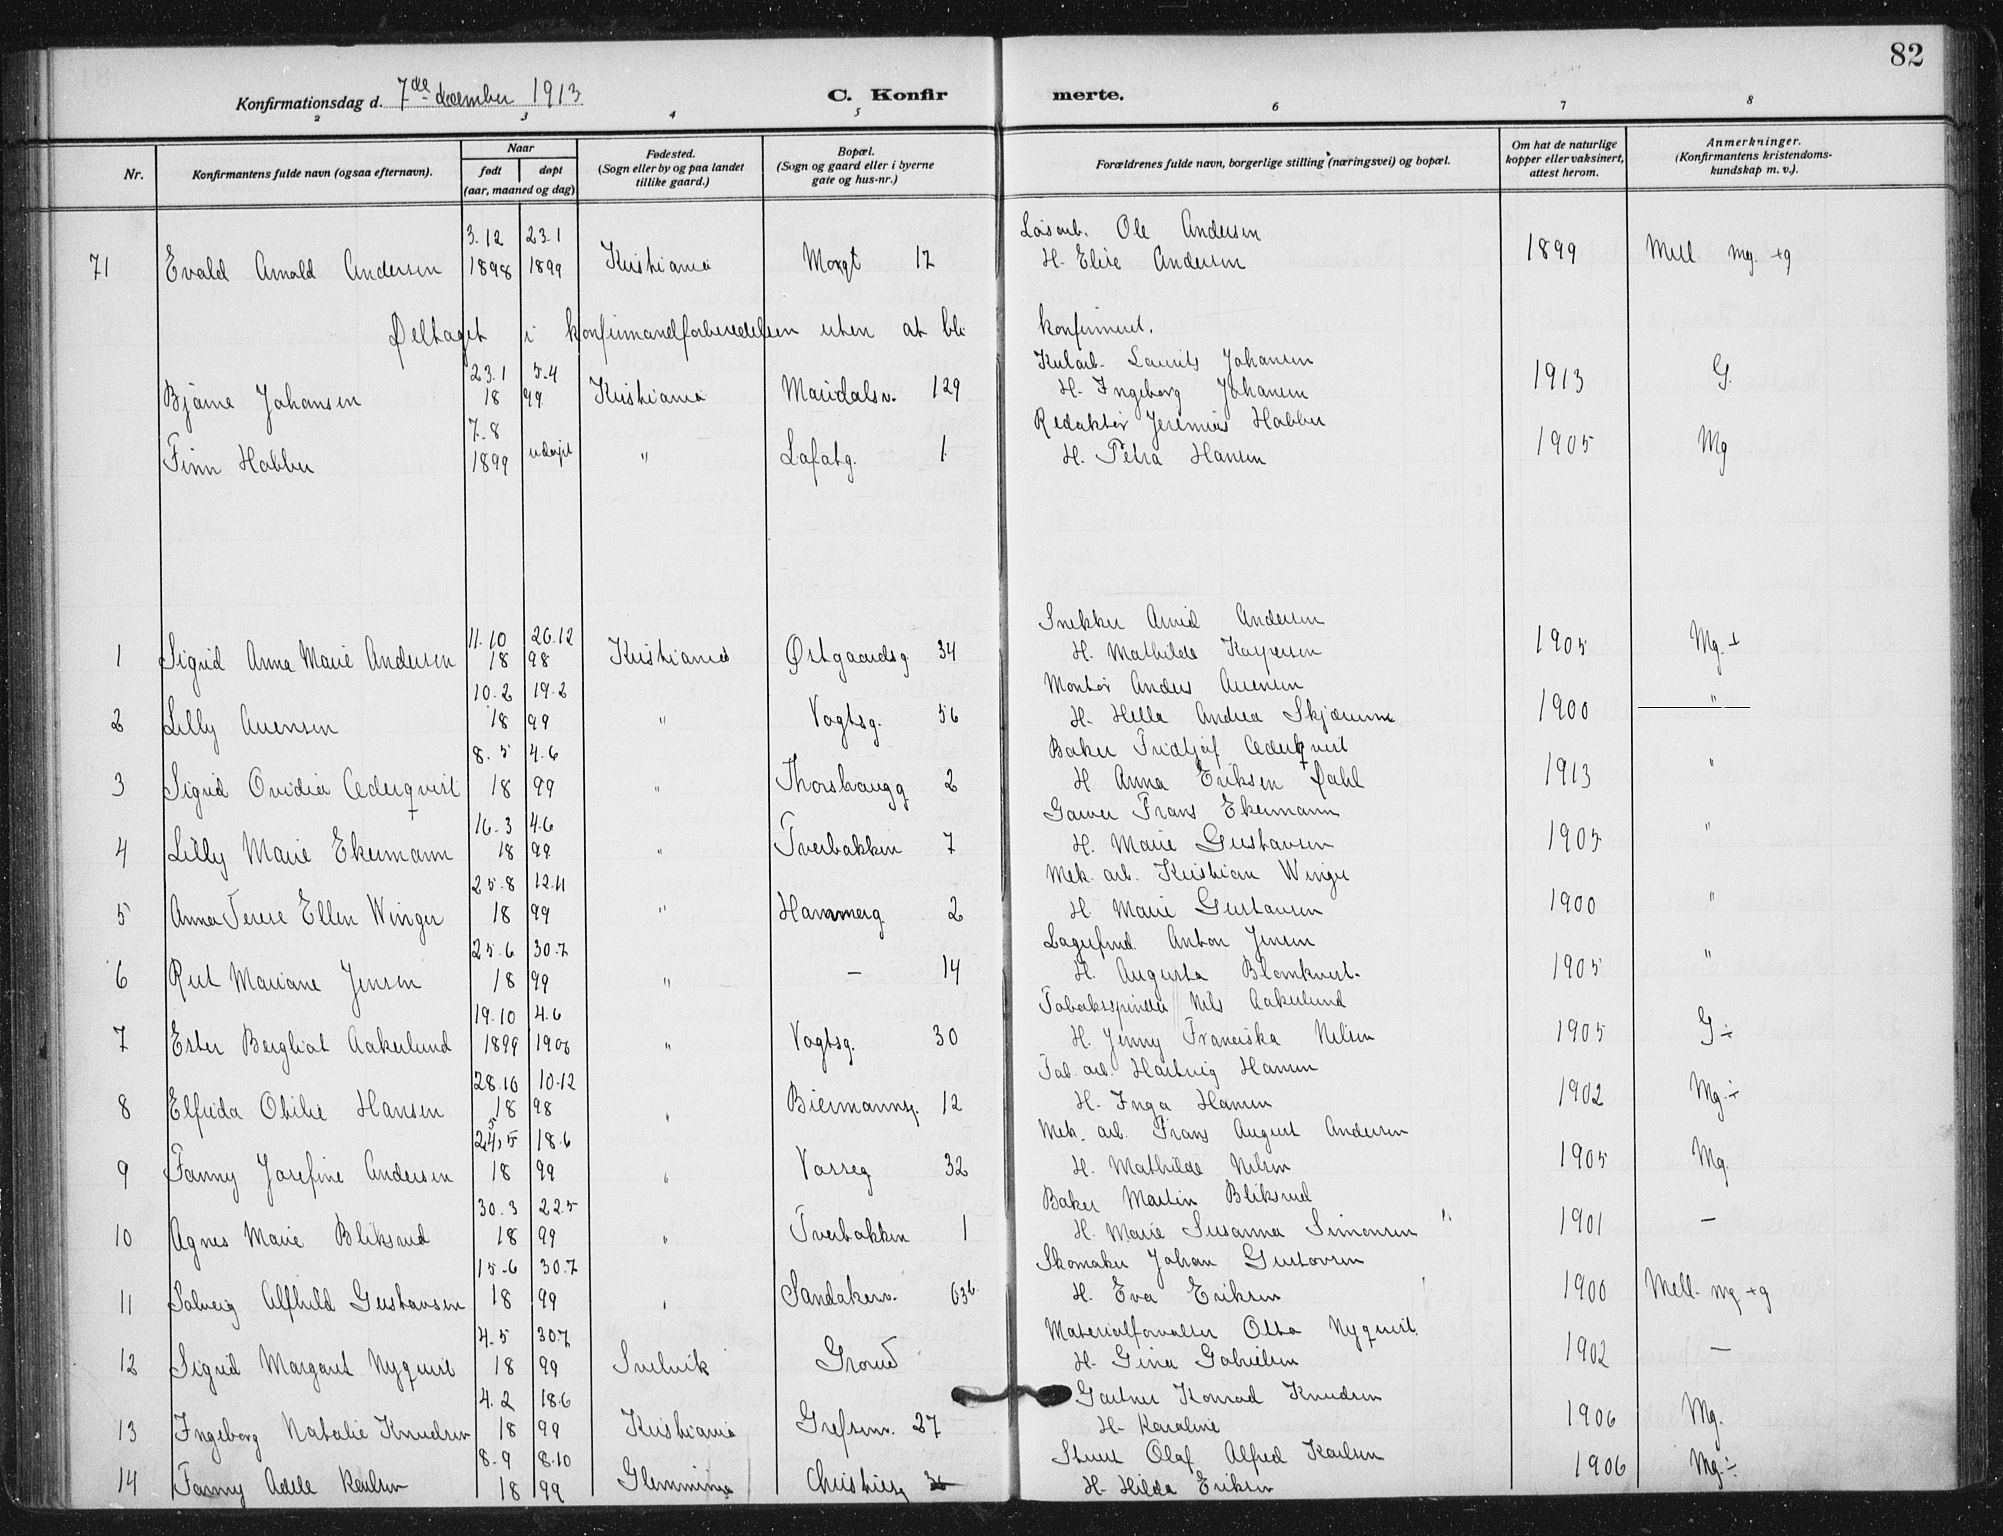 82
Konfirmationsdag d. 7de december 1913 C. Konfirmerte.
2 3 4 5 6 7 8
Nr. Konfirmantens fulde navn (ogsaa efternavn). Naar født døpt (aar, maaned og dag) Fødested. (Sogn eller by og paa landet tillike gaard.) Bopæl. (Sogn og gaard eller i byerne gate og hus-nr.) Forældrenes fulde navn, borgerlige stilling (næringsvei) og bopæl. Om hat de naturlige kopper eller vaksinert, attest herom. Anmerkninger. (Konfirmantens kristendomskundskap m. v.).
3.12 23.1 Løsarb. Ole Andersen
71 Evald Arnold Andersen 1898 1899 Kristiania Moxgt 17 H. Elise Andersen 1899 Mell mg. +g
Deltaget i konfirmandforberedelsen uten at bli konfirmert.
23.1 5.4 Kularb. Laurits Johansen
Bjarne Johansen 18 99 Kristiania Maridalsv. 129 H. Ingeborg Johansen 1913 G.
7.8 Redaktør Jeremias Habber
Finn Habber 1899 udøpt " Lafatg. 1. H. Petra Hansen 1905 Mg
11.10 26.12 Snekker Arvid Andersen
1 Sigrid Anna Marie Andersen 18 98 Kristiania Østgaardsg 34 H. Mathilde Kaspersen 1905 Mg ÷
10.2 19.2 Montør Anders Auensen
2 Lilly Auensen 18 99 " Vogtsg. 56 H. Hella Andrea 1900 "
8.5 4.6 Baker Fridtjof Cederqvist
3 Sigrid Ovidia Cederqvist 18 99 " Thorshaugg 2 H Anna Eriksen Dahl 1913 "
16.3 4.6 Garver Frans Ekermann
4 Lilly Marie Ekermann 18 99 " Tverbakken 7 H. Marie Gustavsen 1905 "
25.8 12.11 Mek. arb. Kristian Winger
5 Anna Terese Ellen Winger 18 99 " Hammerg. 2 H. Marie Gustavsen 1900 "
25.6 30.7 Lagerfmd. Anton Jensen
6 Rut Mariane Jensen 18 99 " — 14 H. Augusta Blomkvist. 1905 "
19.10 4.6 Tobakspinder Nils Aakerlund
7 Ester Bergliot Aakerlund 1899 1900 " Vogtsg. 30 H. Jenny Franciska Nilsen 1905 G ÷
28.10 10.12 Tob. arb. Hartvig Hansen
8 Elfrida Otilie Hansen 18 98 " Biermannsg. 12 H. Inga Hansen 1902 Mg. ÷
24.5 18.6 Mek. arb. Frans August Andersen
9 Fanny Josefine Andersen 18 99 " Vosseg 32 H. Mathilde Nilsen 1905 Mg.
30.3 22.5 Baker Martin Bliksrud
10 Agnes Marie Bliksrud 18 99 " Tverbakken 1 H. Marie Susanna Simonsen 1901 —
15.6 30.7 Skomaker Johan Gustavsen
11 Solveig Alfhild Gustavsen 18 99 " Sandakerv. 63b. H. Eva Eriksen 1900 Mell. mg +g
4.5 30.7 Materialforvalter Otto Nyquist.
12 Sigrid Margaret Nyquist 18 99 Svelvik Grorud H. Gina Gabrielsen 1902 —
4.2 18.6 Gartner Konrad Knudsen
13 Ingeborg Natalie Knudsen 18 99 Kristiania Grefsenv. 27 H. Karoline 1906 Mg.
8.9 8.10 Stuert Olaf Alfred Karlsen
14 Fanny Adele Karlsen 18 99 Glemminge Christiesg 36 H. Hilda Eriksen 1906 Mg. ÷